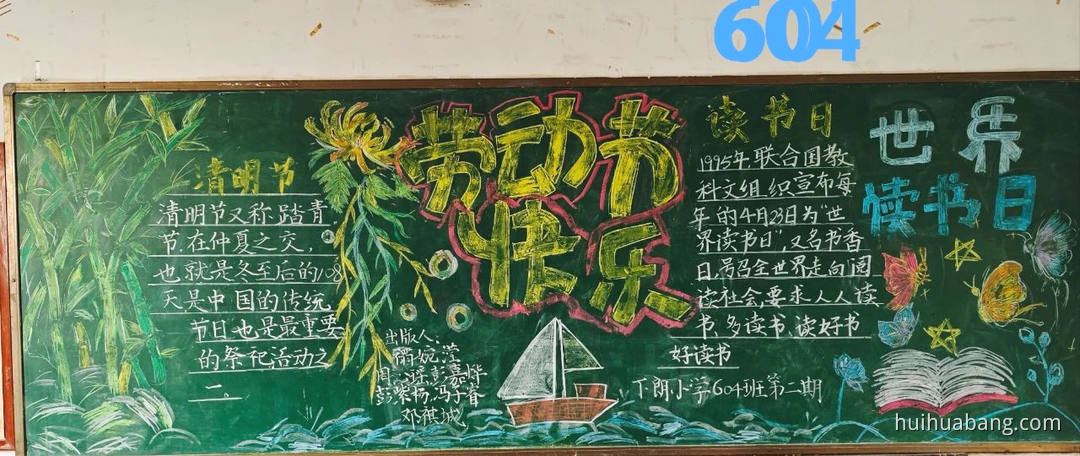 604
清明节
清明节又称踏青
节,在仲夏之交,
也就是冬至后的108
天是中国的传统
节日也是最重要
的祭祀活动之
二
劳动节
快乐
出版人:
下朗小学604班第二期
读书日
1995年联合国教
科文组织宣布每
年的4月23日为"世
界读书日",又名书香
日,号召全世界走向阅
读社会,要求人人读
书、多读书、读好书
好读书
世界
读书日
huihuabang.com